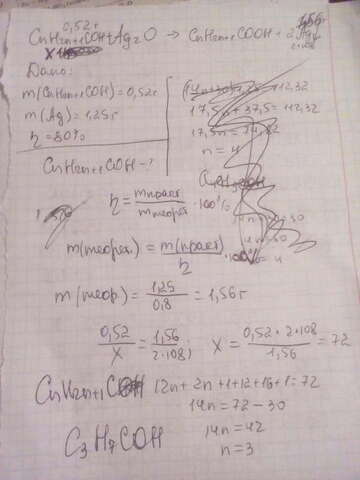 0,52г
CnH2n+1COH + Ag2O → CnH2n+1COOH + 2Ag
Дано:
m(CnH2n+1COH) = 0,52г
m(Ag) = 1,25г
η = 80%
CnH2n+1COH - ?
17,5n = 
n = 4
η = mпракт / mтеорет · 100%
m(теорет.) = m(практ) / η · 100%
m(теор) = 1,25 / 0,8 = 1,56г
0,52 / x = 1,56 / 2·108 x = 0,52·2·108 / 1,56 = 72
CnH2n+1COH 12n + 2n + 1 + 12 + 16 + 1 = 72
14n = 72 - 30
C3H7COH 14n = 42
n = 3